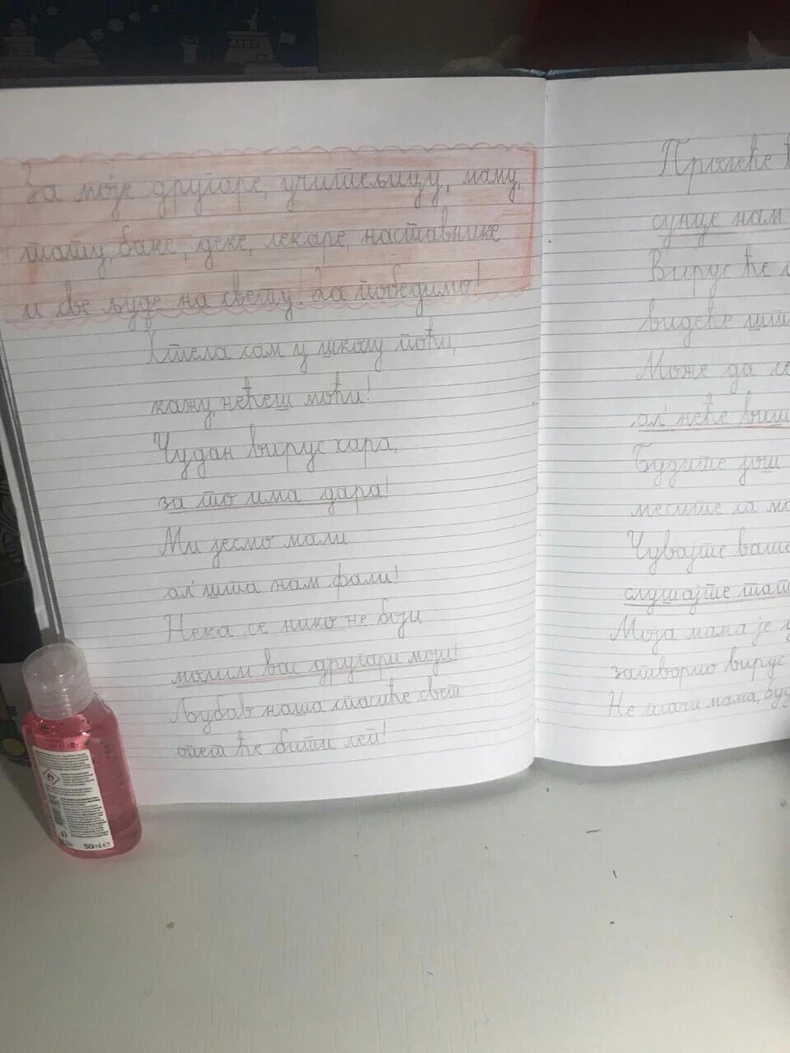 За моје другаре, учитељицу, маму,
тату, баке, деке, лекаре, наставнике
и све људе на свету! Да победимо!
Хтела сам у школу поћи,
кажу нећеш моћи!
Чудан вирус хара,
за то има дара!
Ми јесмо мали
ал' шта нам фали!
Нека се нико не боји
молим вас другари моји!
Љубав наша спасиће свет
опет ће бити леп!
Пролеће
сунце нам
Вирус ће
видеће
Може да
ал' неће
Будите још
месите са
Чувајте ваше
слушајте
Моја мама је
затворио вирус
Не плачи мама,
50ml e